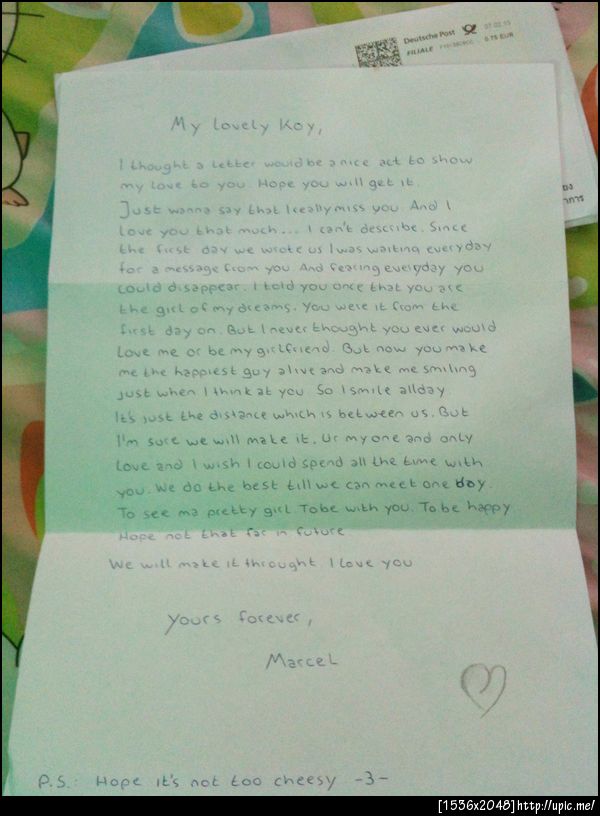 Deutsche Post
07.02.15
FILIALE
0.75 EUR
My lovely Koy,
I thought a letter would be a nice act to show
my love to you. Hope you will get it.
Just wanna say that I really miss you. And I
love you that much... I can't describe. Since
the first day we wrote us I was waiting everyday
for a message from you. And fearing everyday you
could disappear. I told you once that you are
the girl of my dreams. You were it from the
first day on. But I never thought you ever would
love me or be my girlfriend. But now you make
me the happiest guy alive and make me smiling
just when I think at you. So I smile allday.
It's just the distance which is between us. But
I'm sure we will make it. Ur my one and only
love and I wish I could spend all the time with
you. We do the best till we can meet one day.
To see ma pretty girl. To be with you. To be happy.
Hope not that far in future
We will make it throught. I love you
Yours forever,
Marcel
P.S.: Hope it's not too cheesy -3-
[1536x2048]http://upic.me/